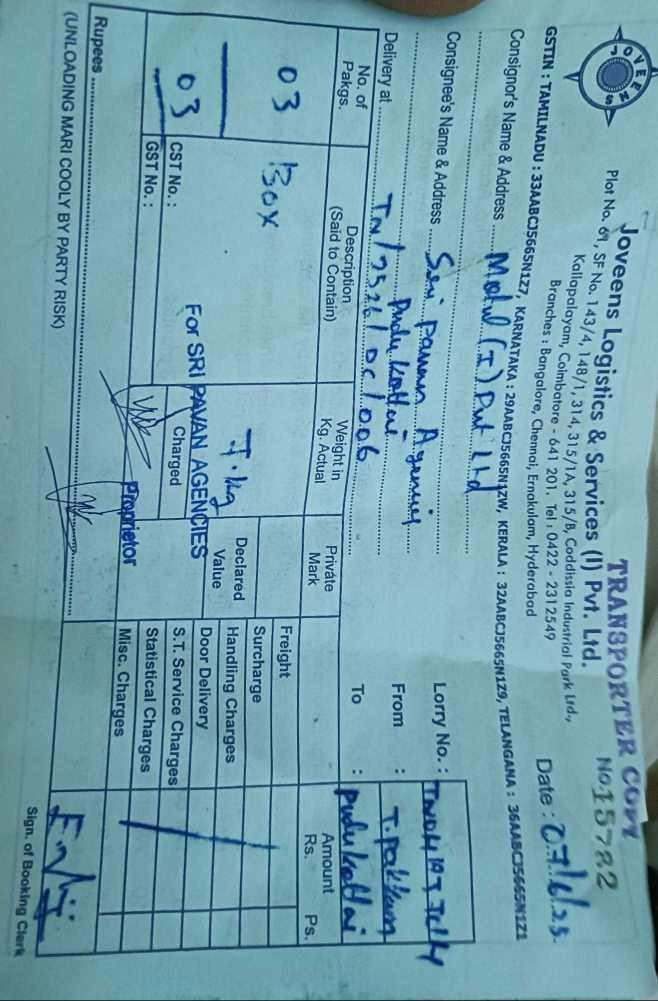 JOVEENS
TRANSPORTER COPY
Joveens Logistics & Services (I) Pvt. Ltd.
No. 15782
Plot No. 69, SF No. 143/4, 148/1, 314, 315/1A, 315/B, Coddissia Industrial Park Ltd.,
Kallapalayam, Coimbatore - 641 201. Tel : 0422 - 2312549
Branches : Bangalore, Chennai, Ernakulam, Hyderabad
Date : 07/6/25
GSTIN : TAMILNADU : 33AABCJ5665N1Z7, KARNATAKA : 29AABCJ5665N1ZW, KERALA : 32AABCJ5665N1Z9, TELANGANA : 36AABCJ5665N1Z1
Consignor's Name & Address Motul (I) Pvt Ltd
Lorry No. :
Consignee's Name & Address Sri Pavan Agencies
Pudukottai
From :
Delivery at TN/2526/DC/006
To : Pudukottai
No. of Pakgs.
Description (Said to Contain)
Weight in Kg. Actual
Private Mark
Amount
Rs. Ps.
03 Box
03
Charged
Declared Value
Freight
Surcharge
Handling Charges
Door Delivery
S.T. Service Charges
Statistical Charges
Misc. Charges
CST No. :
GST No. :
For SRI PAVAN AGENCIES
Proprietor
Rupees
(UNLOADING MARI COOLY BY PARTY RISK)
Sign. of Booking Clerk